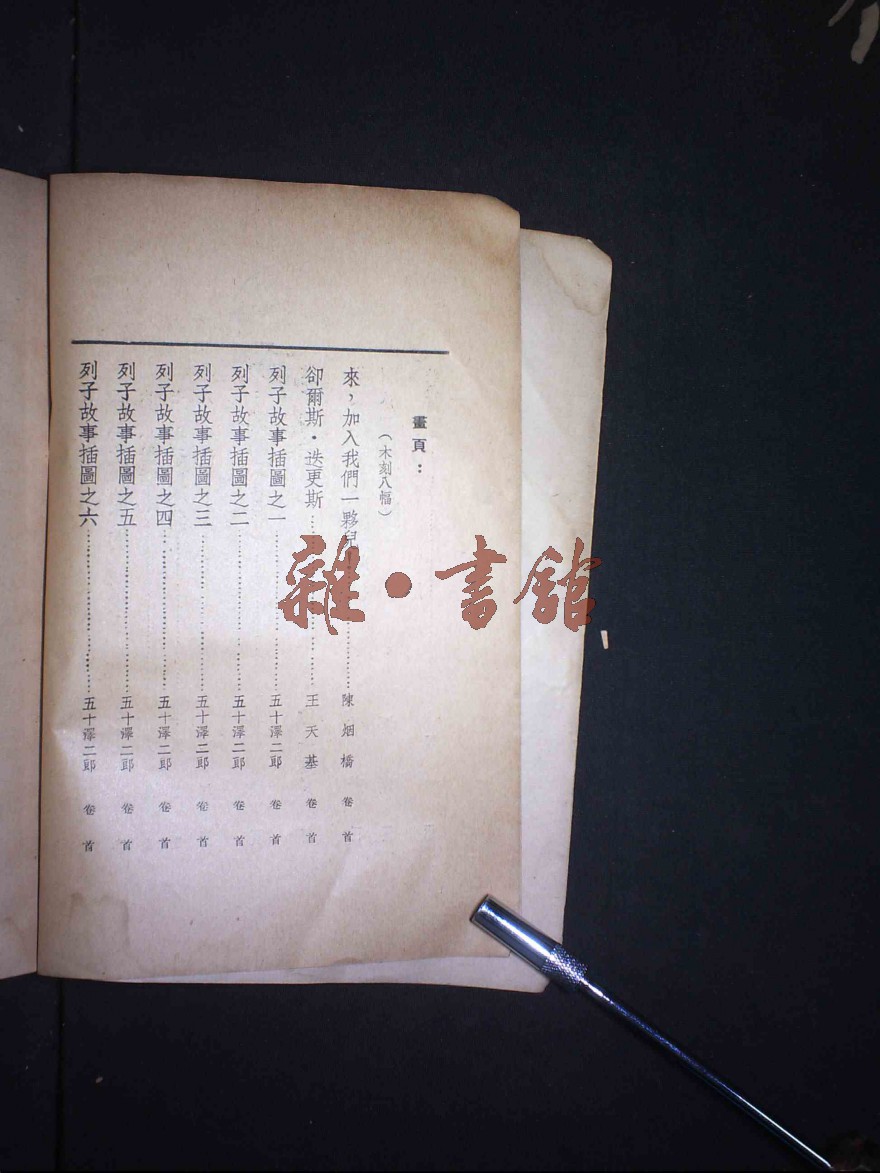 畫頁：
（木刻八幅）
來，加入我們一夥兒……陳烟橋 卷首
卻爾斯·迭更斯……王天基 卷首
列子故事插圖之一……五十澤二郎 卷首
列子故事插圖之二……五十澤二郎 卷首
列子故事插圖之三……五十澤二郎 卷首
列子故事插圖之四……五十澤二郎 卷首
列子故事插圖之五……五十澤二郎 卷首
列子故事插圖之六……五十澤二郎 卷首
雜·書館